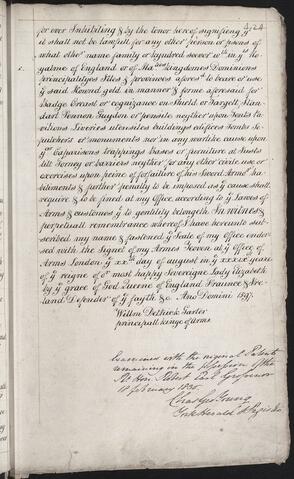 for ever Inhibiting & by the tenor hereof signifying yt
it shall not be lawfull for any other person or psons of
what other name family or kyndred soever wth in ys Re
galme of England or of Ma kingdomes Dominions
principalityes Isles & provinces aforesd to beare or use
ye said Hound gold in manner & forme aforesaid for
Badge Creast or cognizance on Shield or Targett, Stan
dart Pennon Guydon or pensile neyther upon Tents Pa
vilions Liveries utensiles buildings edifices Tombs Se
pulchers or monuments nor in any warlike cause upon
yr Caparisons trappings bases or furniture at Justs
tilt Torney or barriers neyther for any other civile use or
exercises upon peine of forfaiture of his Sword Armes ha
biliments & further penalty to be imposed as ye cause shall
require & to be fined at my office according to ye Lawes of
Arms & customes yt to gentility belongeth In witness &
perpetuall remembrance whereof I have hereunto sub
scribed my name & fastened ye Seale of my office ender
sed with the Signet of my Armes Yeoven at ye office of
Arms London ye xxth day of august in ye xxxix year
of ye reigne of or most happy Sovereigne Lady Elizabeth
by ye grace of God Queene of England Fraunce & Ire
land Defender of ye fayth &c Ano Domini 1597.
Willm Dethick Garter
principall kinge of Arms
Examined with the original Patent
remaining in the possession of the
Rt Hon. Robert Earl Grosvenor
18 February 183
Chas Geo Young
York Herald & Register